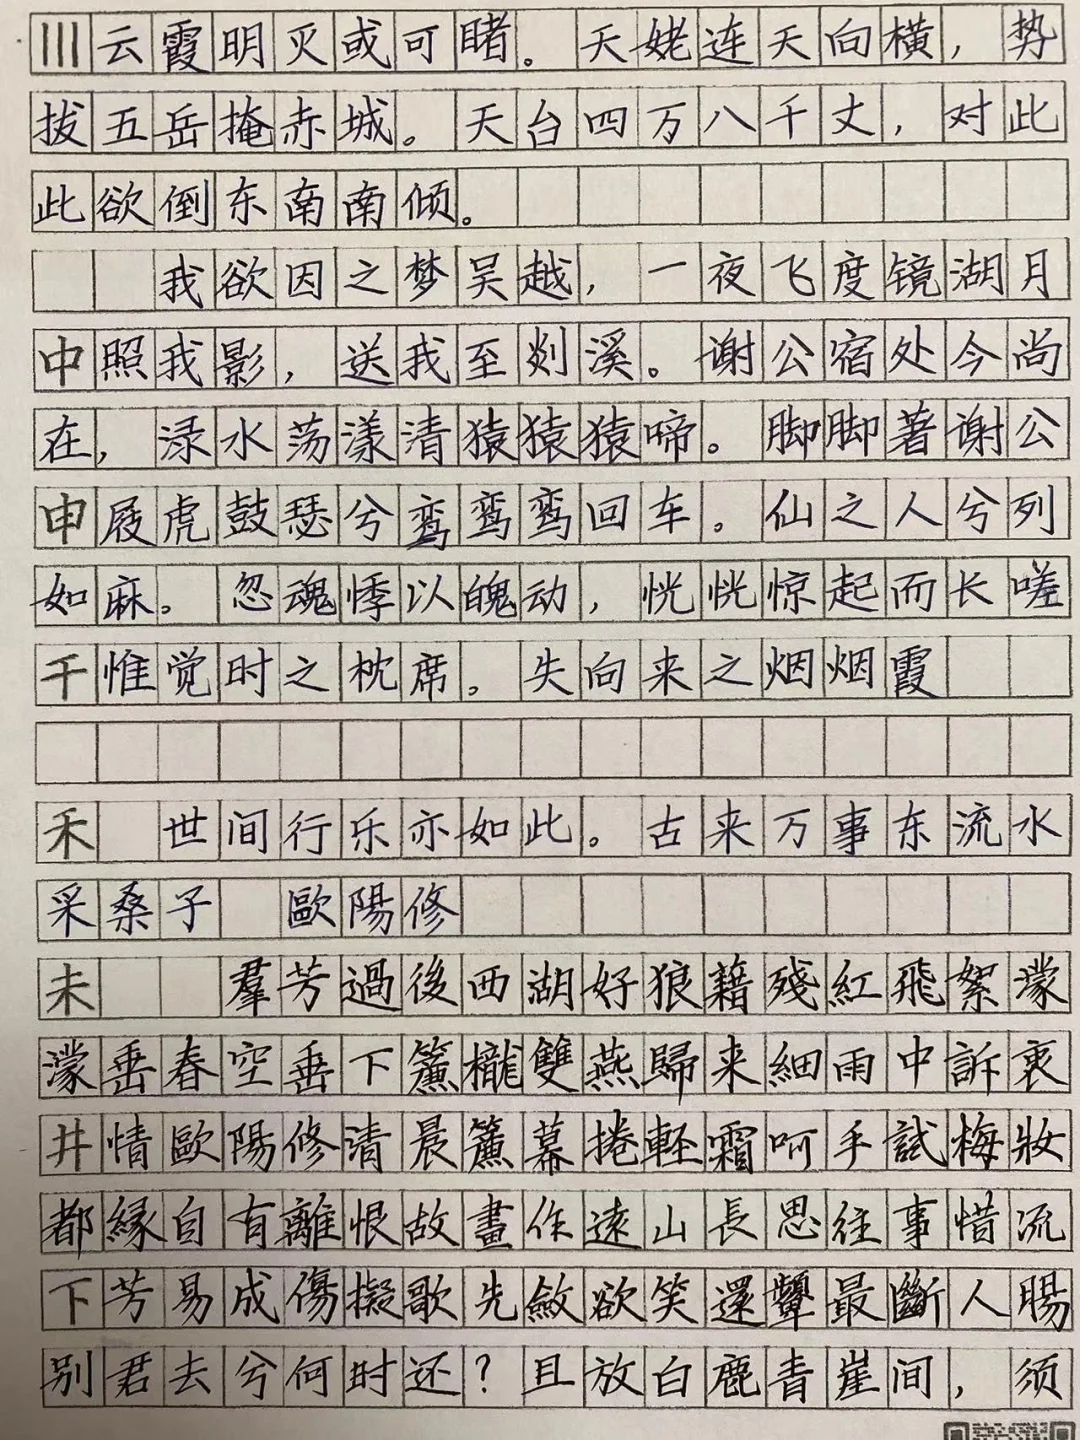 川云霞明灭或可睹。天姥连天向横，势
拔五岳掩赤城。天台四万八千丈，对此
此欲倒东南南倾。
我欲因之梦吴越，一夜飞度镜湖月
中照我影，送我至剡溪。谢公宿处今尚
在，渌水荡漾清猿猿猿啼。脚脚著谢公
申屐虎鼓瑟兮鸾鸾鸾回车。仙之人兮列
如麻。忽魂悸以魄动，恍恍惊起而长嗟
干惟觉时之枕席。失向来之烟烟霞
禾 世间行乐亦如此。古来万事东流水
采桑子 歐陽修
未 羣芳過後西湖好狼藉殘紅飛絮濛
濛垂春空垂下簾櫳雙燕歸来細雨中訴衷
井情歐陽修清晨簾幕捲軽霜呵手試梅妝
都緣自有離恨故畫作遠山長思往事惜流
下芳易成傷擬歌先斂欲笑還顰最斷人腸
别君去兮何时还？且放白鹿青崖间，须